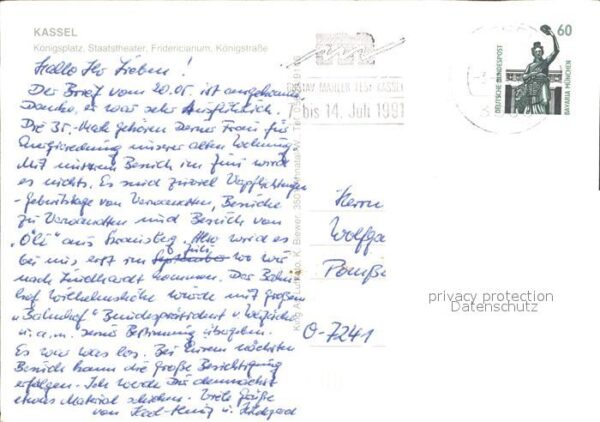 KASSEL
Königsplatz, Staatstheater, Fridericianum, Königstraße
Hallo Ihr Lieben!
Der Brief vom 20.05. ist angekommen
Danke, er war sehr Ausführlich.
Die 35.-Mark gehören Deiner Frau für
unserer alten Wohnung
Mit unserem Besuch im Juni wird
es nichts. Es sind zuviel Verpflichtungen
- Geburtstage von Verwandten, Besuche
zu Verwandten und Besuch von
aus Also wird es
bei uns erst im September Juli wo wir
nach kommen. Der Bahn-
hof Wilhelmshöhe wurde mit großem
"Bahnhof" Bundespräsident v. Weizsäcker
u.a.m. seiner Bestimmung übergeben.
Es war was los. Bei Eurem nächsten
Besuch kann die große Besichtigung
erfolgen. Ich werde Dir demnächst
etwas Material schicken. Viele Grüße
von u. Hildegard
GUSTAV MAHLER FEST KASSEL
bis 14. Juli 1991
60
DEUTSCHE BUNDESPOST
BAVARIA MÜNCHEN
Herrn
Wolfga
O-7241
privacy protection
Datenschutz